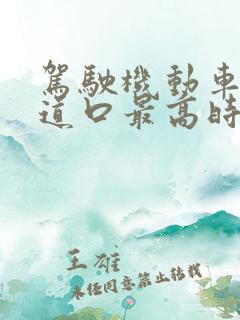 駕駛機動車
道口最高時
王雄
未經同意禁止轉載